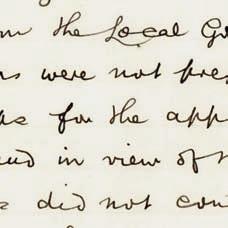 the Local Go
were not pres
for the app
and in view of t
did not con